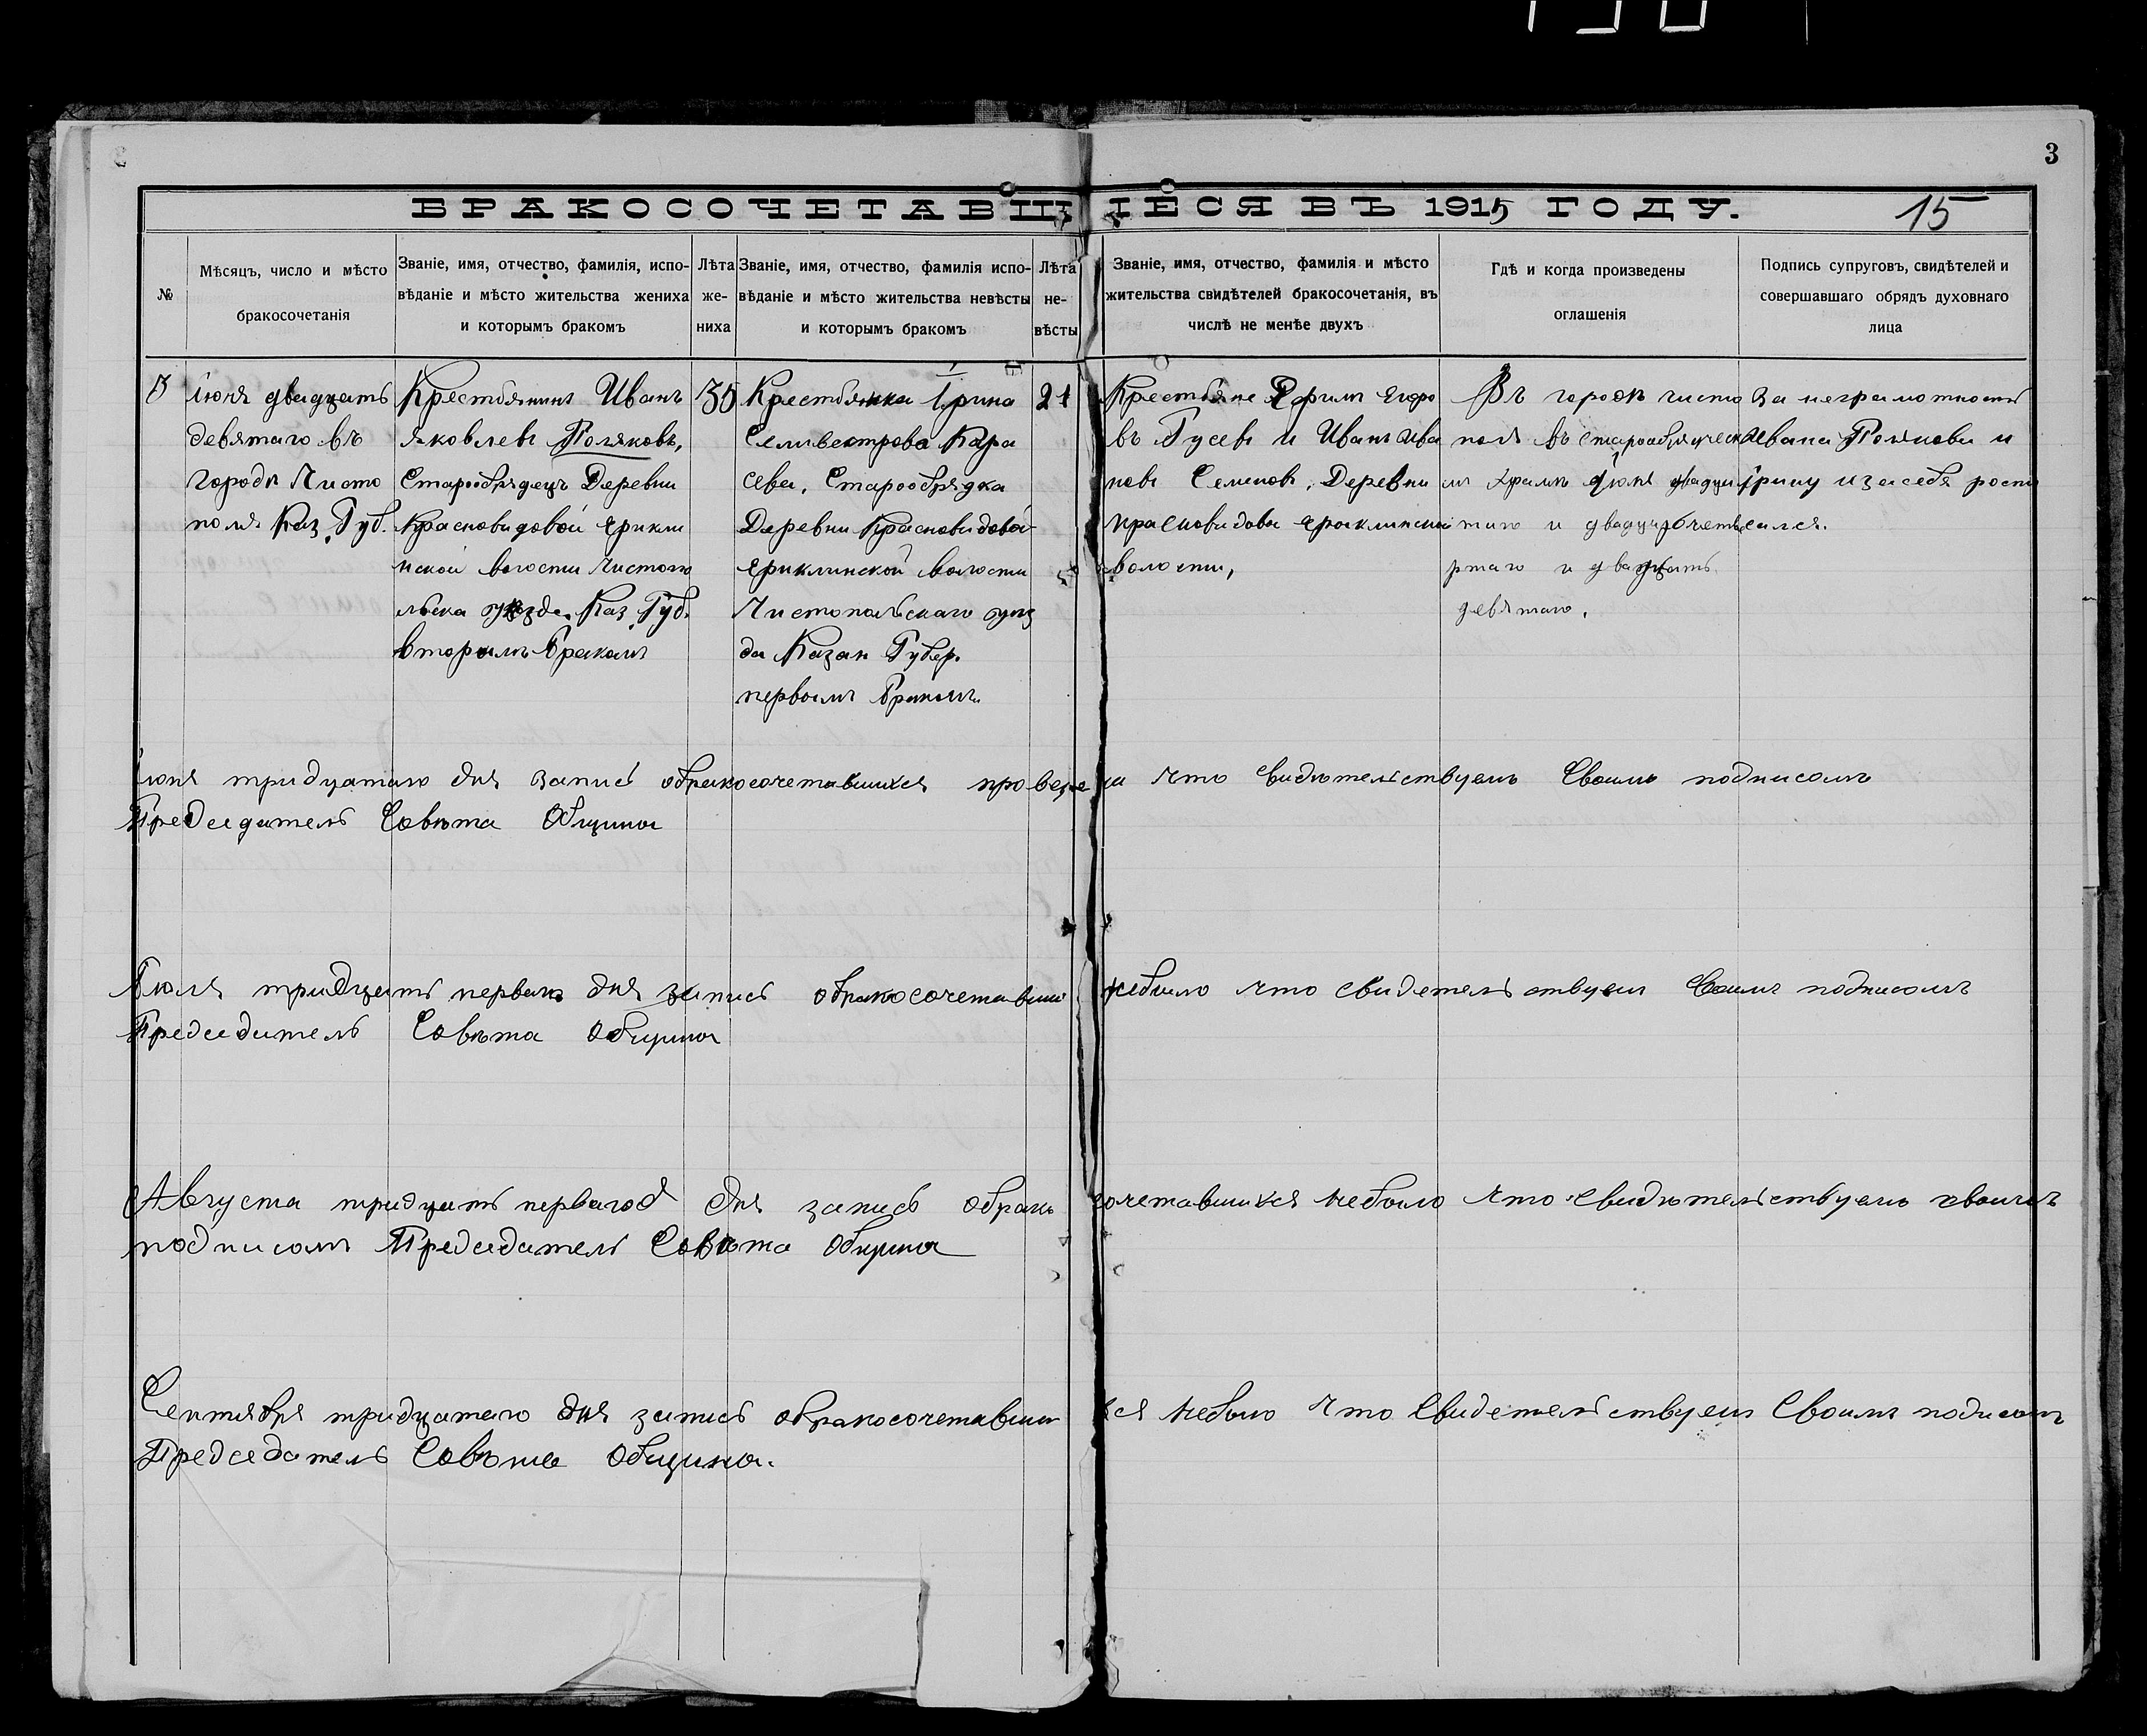 3
БРАКОСОЧЕТАВШІЕСЯ ВЪ 1915 ГОДУ.
15
№
Мѣсяцъ, число и мѣсто
бракосочетанія
Званіе, имя, отчество, фамилія, испо-
вѣданіе и мѣсто жительства жениха
и которымъ бракомъ
Лѣта
же-
ниха
Званіе, имя, отчество, фамилія испо-
вѣданіе и мѣсто жительства невѣсты
и которымъ бракомъ
Лѣта
не-
вѣсты
Званіе, имя, отчество, фамилія и мѣсто
жительства свидѣтелей бракосочетанія, въ
числѣ не менѣе двухъ
Гдѣ и когда произведены
оглашенія
Подпись супруговъ, свидѣтелей и
совершавшаго обрядъ духовнаго
лица
3
Іюня двадцать
девятаго въ
городѣ Чисто
поля Каз. Губ.
Крестьянинъ Иванъ
Яковлевъ Поляковъ,
Старообрядецъ Деревни
Красновидовой Ерикли
нской волости Чистопо
льска уѣзда. Каз. Губ.
вторымъ Бракомъ
35
Крестьянка Ірина
Селивестрова Кара
сева, Старообрядка
Деревни Красновидовой
Ериклинской волости
Чистопольскаго уѣз
да Казан Губер.
первымъ Бракомъ
21
Крестьяне Ефримъ Егоро
въ Гусевъ и Иванъ Ива
новъ Семеновъ, Деревни
Красновидова Ериклинской
волости,
Въ городѣ чисто
поля въ старообрядческо
мъ храмѣ Июня двадца
таго и двадцать четве
ртаго и двадцать
девятаго.
За неграмотность
Ивана Полякова и
Ірину иза себя роспи
сался.
Іюня тридцатаго дня запись обракосочетавшихся проверена что свидѣтельствуемъ Своимъ подписомъ
Председатель Совѣта Общины
Июля тридцать перваго дня запись обракосочетавши небыло что свидетельствуем Своимъ подписомъ
Председатель Совѣта Общины
Августа тридцать перваго дня запись обракосочетавшихся небыло что Свидѣтельствуемъ своимъ
подписомъ Председатель Совѣта Общины
Сентября тридцатаго дня запись обракосочетавши хся небыло что Свидетельствуем Своимъ подисомъ
Председатель Совѣта Общины.